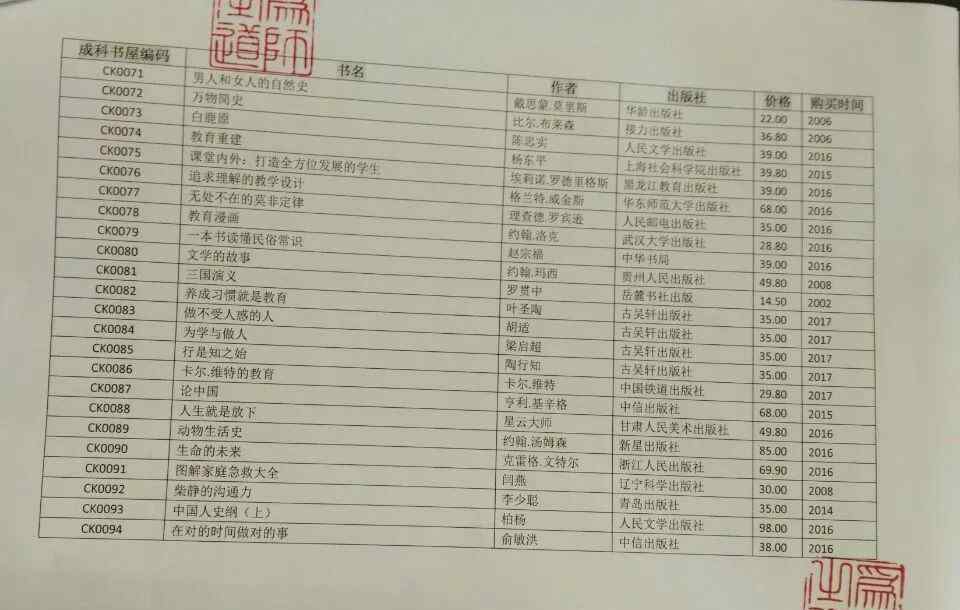 为师
之道
成科书屋编码 书名 作者 出版社 价格 购买时间
CK0071 男人和女人的自然史 戴思蒙.莫里斯 华龄出版社 22.00 2006
CK0072 万物简史 比尔.布莱森 接力出版社 36.80 2006
CK0073 白鹿原 陈忠实 人民文学出版社 39.00 2016
CK0074 教育重建 杨东平 上海社会科学院出版社 39.80 2015
CK0075 课堂内外：打造全方位发展的学生 埃莉诺.罗德里格斯 黑龙江教育出版社 39.00 2016
CK0076 追求理解的教学设计 格兰特.威金斯 华东师范大学出版社 68.00 2016
CK0077 无处不在的莫非定律 理查德.罗宾逊 人民邮电出版社 35.00 2016
CK0078 教育漫画 约翰.洛克 武汉大学出版社 28.80 2016
CK0079 一本书读懂民俗常识 赵宗福 中华书局 39.00 2016
CK0080 文学的故事 约翰.玛西 贵州人民出版社 49.80 2008
CK0081 三国演义 罗贯中 岳麓书社出版 14.50 2002
CK0082 养成习惯就是教育 叶圣陶 古吴轩出版社 35.00 2017
CK0083 做不受人感的人 胡适 古吴轩出版社 35.00 2017
CK0084 为学与做人 梁启超 古吴轩出版社 35.00 2017
CK0085 行是知之始 陶行知 古吴轩出版社 35.00 2017
CK0086 卡尔.维特的教育 卡尔.维特 中国铁道出版社 29.80 2017
CK0087 论中国 亨利.基辛格 中信出版社 68.00 2015
CK0088 人生就是放下 星云大师 甘肃人民美术出版社 49.80 2016
CK0089 动物生活史 约翰.汤姆森 新星出版社 85.00 2016
CK0090 生命的未来 克雷格.文特尔 浙江人民出版社 69.90 2016
CK0091 图解家庭急救大全 闫燕 辽宁科学出版社 30.00 2008
CK0092 柴静的沟通力 李少聪 青岛出版社 35.00 2014
CK0093 中国人史纲（上） 柏杨 人民文学出版社 98.00 2016
CK0094 在对的时间做对的事 俞敏洪 中信出版社 38.00 2016